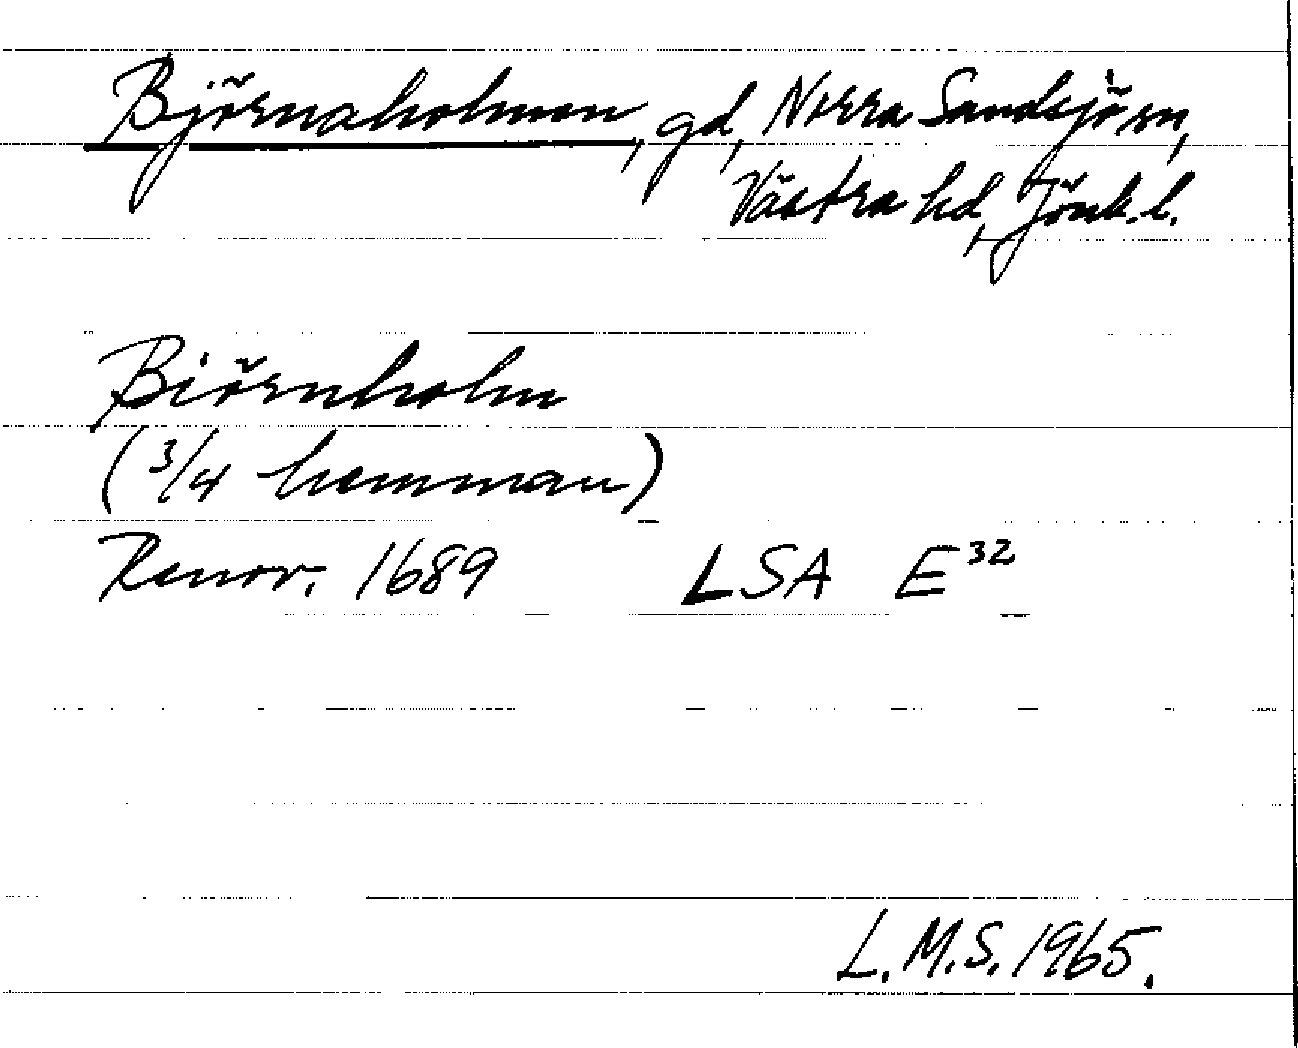 Björnaholmen, gd, Norra Sandsjö sn,
Västra hd, Jönk. l.
Biörnholm
(3/4 hemman)
Renov. 1689 LSA E³²
L.M.S. 1965.